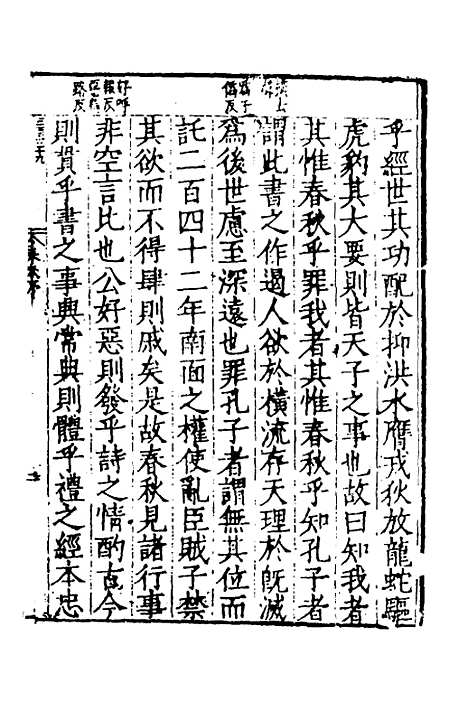 乎經世其功配於抑洪水膺戎狄放龍蛇驅
虎豹其大要則皆天子之事也故曰知我者
其惟春秋乎罪我者其惟春秋乎知孔子者
謂此書之作遏人欲於橫流存天理於既滅
為後世慮至深遠也罪孔子者謂無其位而
託二百四十二年南面之權使亂臣賊子禁
其欲而不得肆則戚矣是故春秋見諸行事
非空言比也公好惡則發乎詩之情酌古今
則貫乎書之事興常典則體乎禮之經本忠